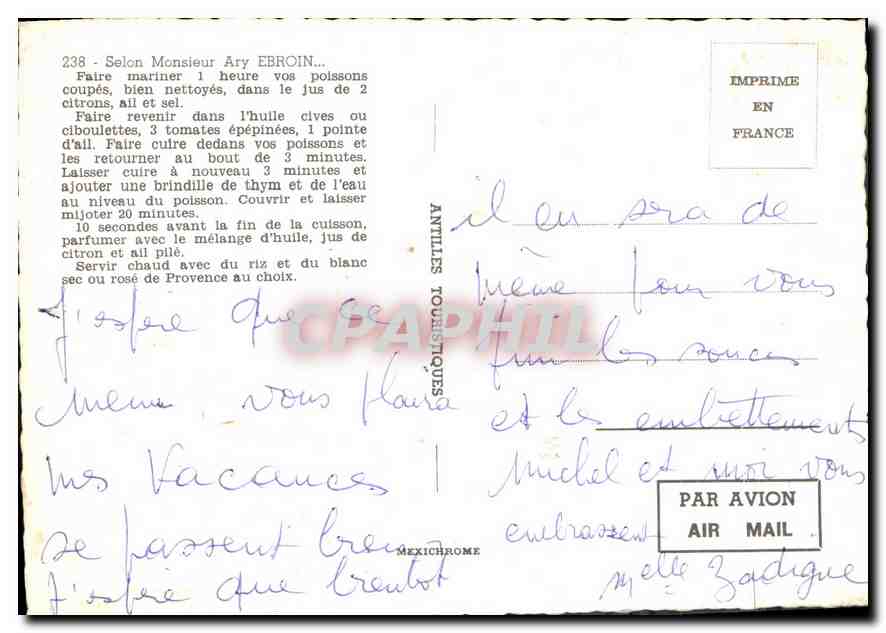 238 - Selon Monsieur Ary EBROIN...
Faire mariner 1 heure vos poissons
coupés, bien nettoyés, dans le jus de 2
citrons, ail et sel.
Faire revenir dans l'huile cives ou
ciboulettes, 3 tomates épépinées, 1 pointe
d'ail. Faire cuire dedans vos poissons et
les retourner au bout de 3 minutes.
Laisser cuire à nouveau 3 minutes et
ajouter une brindille de thym et de l'eau
au niveau du poisson. Couvrir et laisser
mijoter 20 minutes.
10 secondes avant la fin de la cuisson,
parfumer avec le mélange d'huile, jus de
citron et ail pilé.
Servir chaud avec du riz et du blanc
sec ou rosé de Provence au choix.
J'espère que ce
menu, vous plaira
mes vacances
se passent bien
J'espère que bientot
ANTILLES TOURISTIQUES
MEXICHROME
IMPRIME
EN
FRANCE
il en sera de
même pour vous
fini les soucis
et les embêttements
Michel et moi vous
embrassent
PAR AVION
AIR MAIL
Melle
CPAPHIL